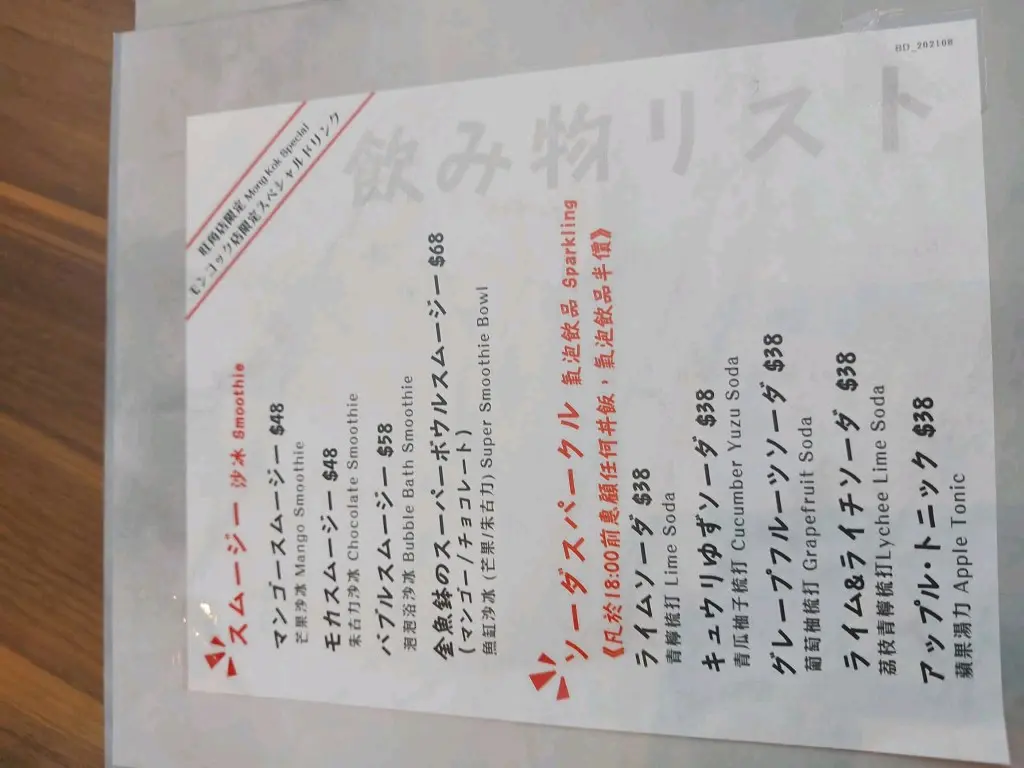 BD_202108
飲み物リスト
旺角店限定 Mong Kok Special
モンコック店限定スペシャルドリンク
スムージー 沙冰 Smoothie
マンゴースムージー $48
芒果沙冰 Mango Smoothie
モカスムージー $48
朱古力沙冰 Chocolate Smoothie
バブルスムージー $58
泡泡浴沙冰 Bubble Bath Smoothie
金魚鉢のスーパーボウルスムージー $68
(マンゴー/チョコレート)
魚缸沙冰 (芒果/朱古力) Super Smoothie Bowl
ソーダスパークル 氣泡飲品 Sparkling
《凡於18:00前惠顧任何丼飯，氣泡飲品半價》
ライムソーダ $38
青檸梳打 Lime Soda
キュウリゆずソーダ $38
青瓜柚子梳打 Cucumber Yuzu Soda
グレープフルーツソーダ $38
葡萄柚梳打 Grapefruit Soda
ライム&ライチソーダ $38
荔枝青檸梳打Lychee Lime Soda
アップル・トニック $38
蘋果湯力 Apple Tonic